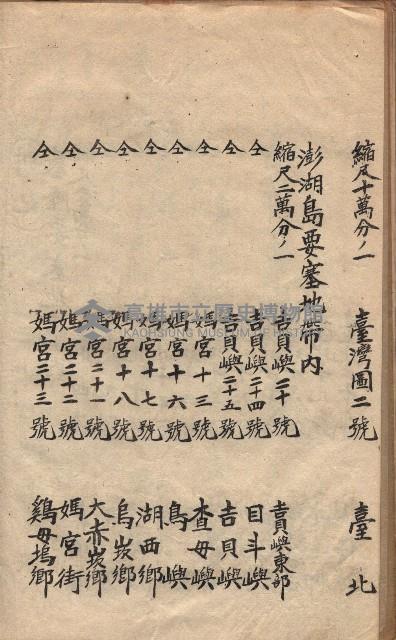 縮尺十萬分ノ一 臺灣圖二號 臺北
澎湖島要塞地帶內
縮尺二萬分ノ一 吉貝嶼二十號 吉貝嶼東部
仝 吉貝嶼二十四號 目斗嶼
仝 吉貝嶼二十五號 吉貝嶼
仝 媽宮十三號 查母嶼
仝 媽宮十六號 鳥嶼
仝 媽宮十七號 湖西鄉
仝 媽宮十八號 烏崁鄉
仝 媽宮二十一號 大赤崁鄉
仝 媽宮二十二號 媽宮街
仝 媽宮二十三號 鷄母塢鄉
高雄市立歷史博物館
KAOHSIUNG MUSEUM OF HISTORY